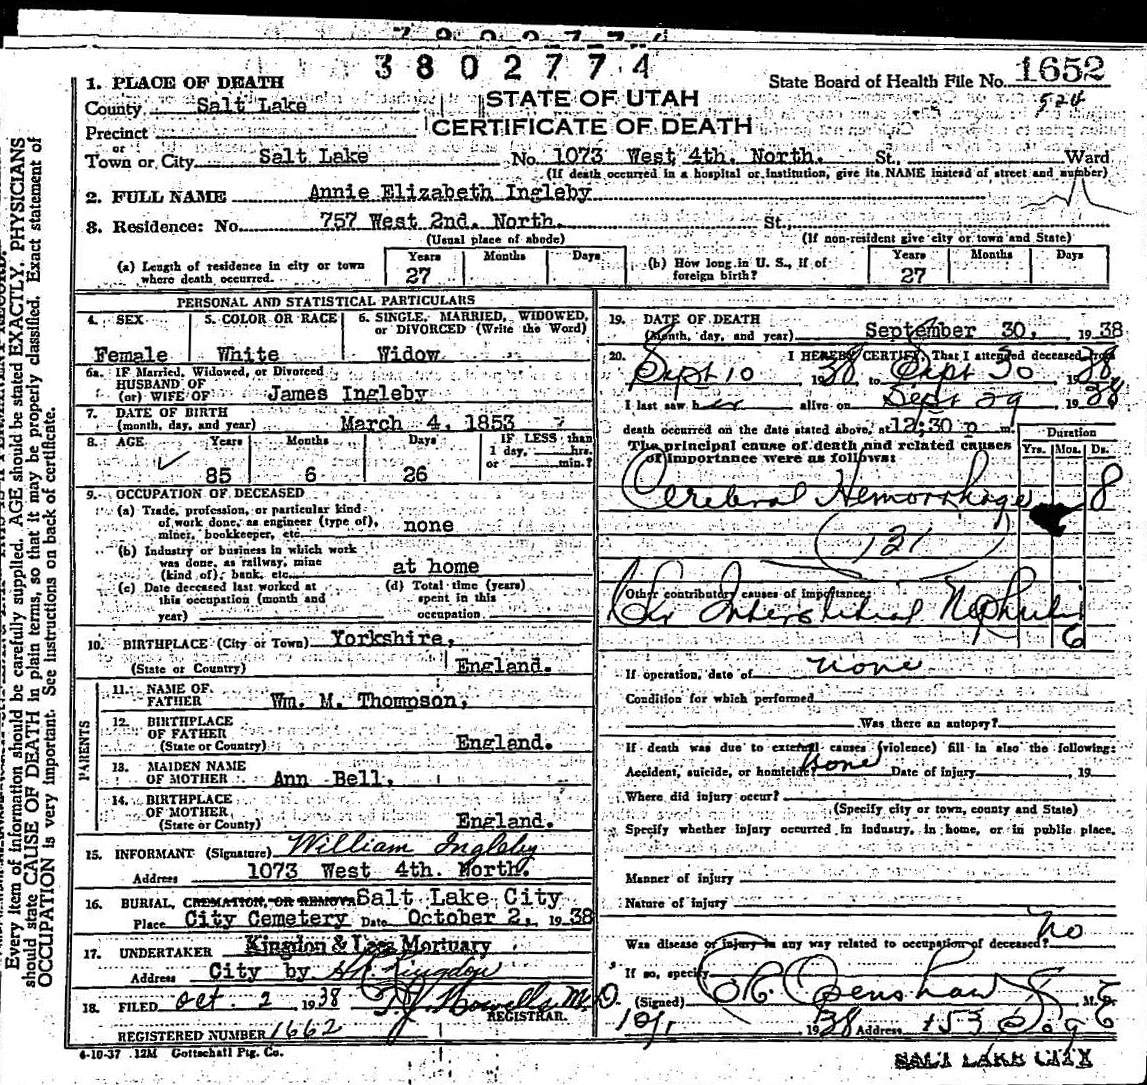 3802774
State Board of Health File No. 1652
524
1. PLACE OF DEATH
STATE OF UTAH
CERTIFICATE OF DEATH
County Salt Lake
Precinct
or
Town or City Salt Lake No. 1073 West 4th. North. St., Ward
(If death occurred in a hospital or institution, give its NAME instead of street and number)
2. FULL NAME Annie Elizabeth Ingleby
3. Residence: No. 757 West 2nd. North. St.,
(Usual place of abode) (If non-resident give city or town and State)
(a) Length of residence in city or town where death occurred. Years 27 Months Days
(b) How long in U. S., if of foreign birth? Years 27 Months Days
PERSONAL AND STATISTICAL PARTICULARS
4. SEX Female
5. COLOR OR RACE White
6. SINGLE, MARRIED, WIDOWED, or DIVORCED (Write the Word) Widow
6a. IF Married, Widowed, or Divorced
HUSBAND OF
(or) WIFE OF James Ingleby
7. DATE OF BIRTH
(month, day, and year) March 4, 1853
8. AGE Years 85 Months 6 Days 26 IF LESS than 1 day, hrs. or min.?
9. OCCUPATION OF DECEASED
(a) Trade, profession, or particular kind of work done, as engineer (type of), miner, bookkeeper, etc. none
(b) Industry or business in which work was done, as railway, mine (kind of), bank, etc. at home
(c) Date deceased last worked at this occupation (month and year)
(d) Total time (years) spent in this occupation
10. BIRTHPLACE (City or Town) Yorkshire,
(State or Country) England.
PARENTS
11. NAME OF FATHER Wm. M. Thompson,
12. BIRTHPLACE OF FATHER
(State or Country) England.
13. MAIDEN NAME OF MOTHER Ann Bell,
14. BIRTHPLACE OF MOTHER
(State or Country) England.
15. INFORMANT (Signature) William Ingleby
Address 1073 West 4th. North.
16. BURIAL, CREMATION, OR REMOVA Salt Lake City
Place City Cemetery Date October 2, 1938
17. UNDERTAKER Kingdon & Lees Mortuary
Address City by Kingdon
18. FILED Oct. 2 1938 T. J. Howells M.D.
REGISTRAR.
REGISTERED NUMBER 1662
4-10-37 12M Gottschall Ptg. Co.
19. DATE OF DEATH
(Month, day, and year) September 30, 1938
20. I HEREBY CERTIFY, That I attended deceased from
Sept 10, 1938 to Sept 30 1938
I last saw her alive on Sept 29 1938
death occurred on the date stated above, at 12:30 p m.
The principal cause of death and related causes of importance were as follows:
Duration
Yrs. Mos. Ds.
Cerebral Hemorrhage 8
(131)
Other contributory causes of importance:
Chr Interstitial Nephritis
6
If operation, date of none
Condition for which performed
Was there an autopsy?
If death was due to external causes (violence) fill in also the following:
Accident, suicide, or homicide? None Date of injury 19
Where did injury occur?
(Specify city or town, county and State)
Specify whether injury occurred in industry, in home, or in public place.
Manner of injury
Nature of injury
Was disease or injury in any way related to occupation of deceased? No
If so, specify
(Signed) Openshaw M. D.
10/1 1938 Address 153 So 9 E
SALT LAKE CITY
Every item of information should be carefully supplied. AGE should be stated EXACTLY. PHYSICIANS
should state CAUSE OF DEATH in plain terms, so that it may be properly classified. Exact statement of
OCCUPATION is very important. See instructions on back of certificate.